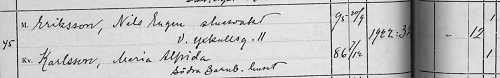 M. Eriksson, Nils Eugen slussvakt 95 20/9 1922:32 - 12 1
V. Yxkullsg. 11
45
Kv. Karlsson, Maria Alfrida 86 7/12 1
Södra Barnb. huset